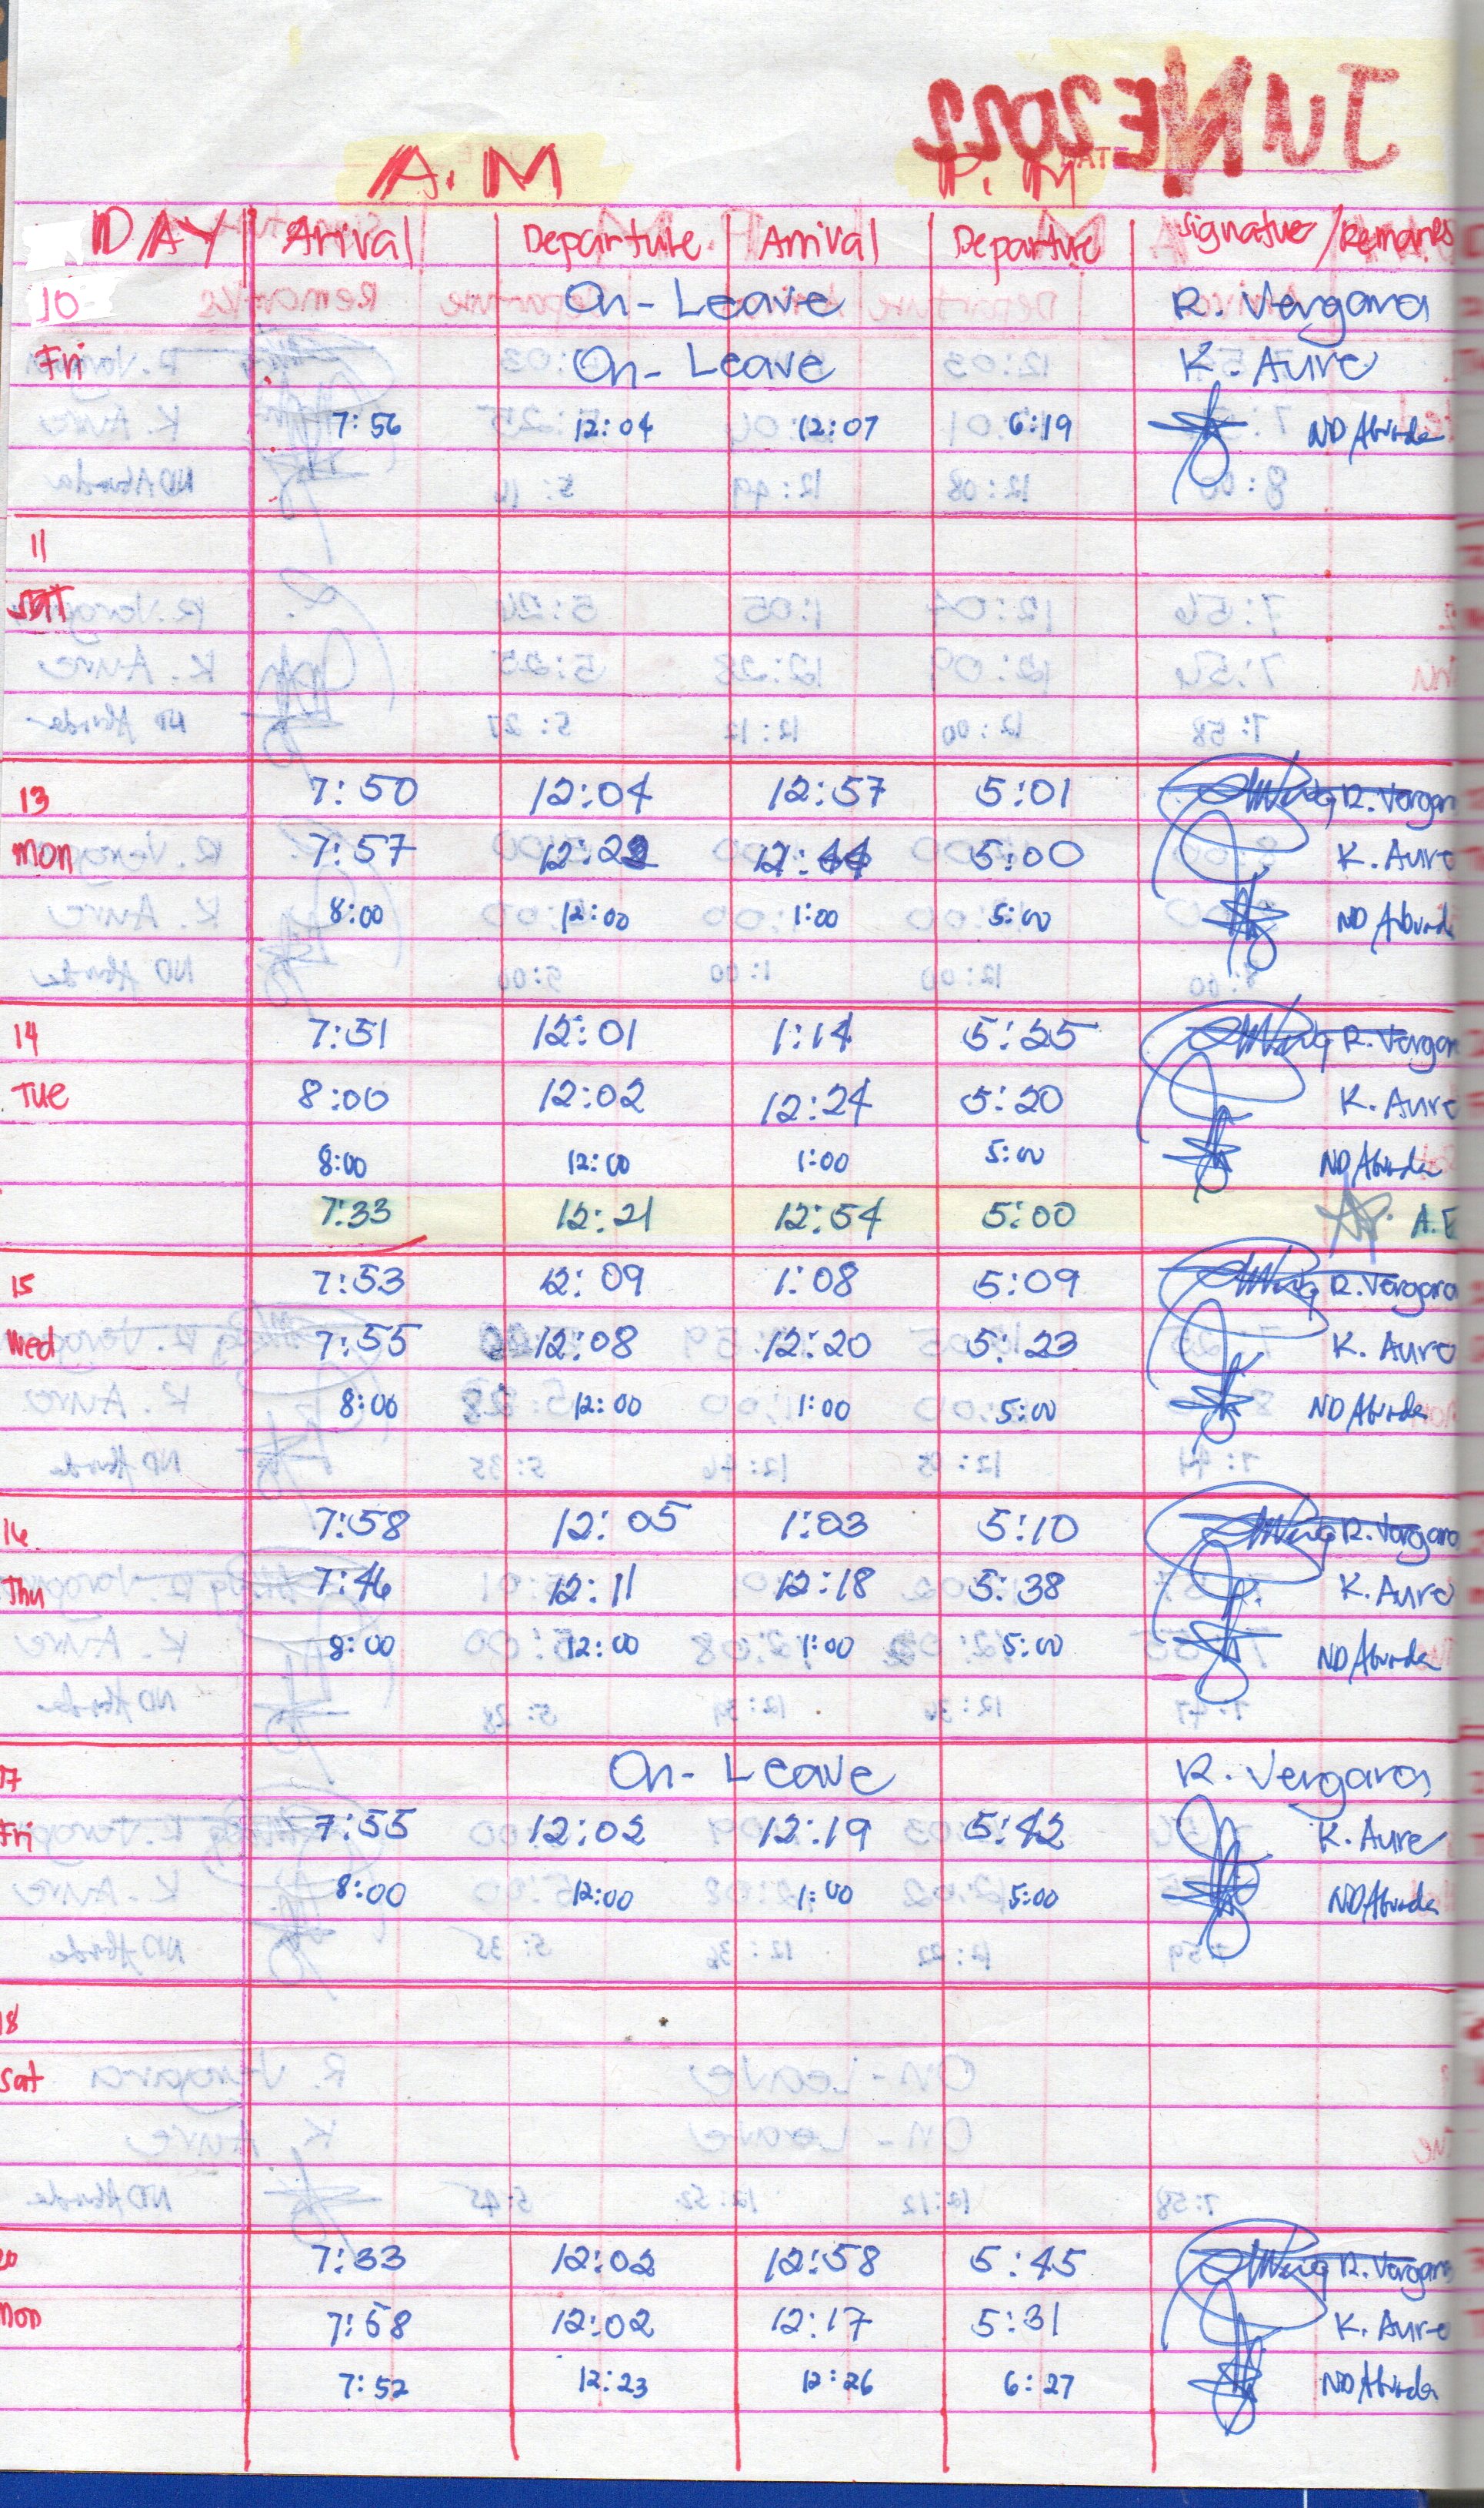 JUNE 2022
DATE
A.M P.M
DAY Arrival Departure Arrival Departure Signature/Remarks
10 On-Leave R. Vergara
Fri On-Leave K. Aure
7:56 12:04 12:07 6:19 ND Aburda
11
SAT
13 7:50 12:04 12:57 5:01 R. Vergar
Mon 7:57 12:22 12:44 5:00 K. Aure
8:00 12:00 1:00 5:00 ND Aburda
14 7:51 12:01 1:14 5:25 R. Vergar
Tue 8:00 12:02 12:24 5:20 K. Aure
8:00 12:00 1:00 5:00 ND Aburda
7:33 12:21 12:54 5:00 A.
15 7:53 12:09 1:08 5:09 R. Vergara
Wed 7:55 12:08 12:20 5:23 K. Aure
8:00 12:00 1:00 5:00 ND Aburda
16 7:58 12:05 1:03 5:10 R. Vergara
Thu 7:46 12:11 12:18 5:38 K. Aure
8:00 12:00 1:00 5:00 ND Aburda
17 On-Leave R. Vergara
Fri 7:55 12:02 12:19 5:42 K. Aure
8:00 12:00 1:00 5:00 ND Aburda
18
Sat
20 7:33 12:02 12:58 5:45 R. Vergara
Mon 7:58 12:02 12:17 5:31 K. Aure
7:52 12:23 12:26 6:27 ND Aburda